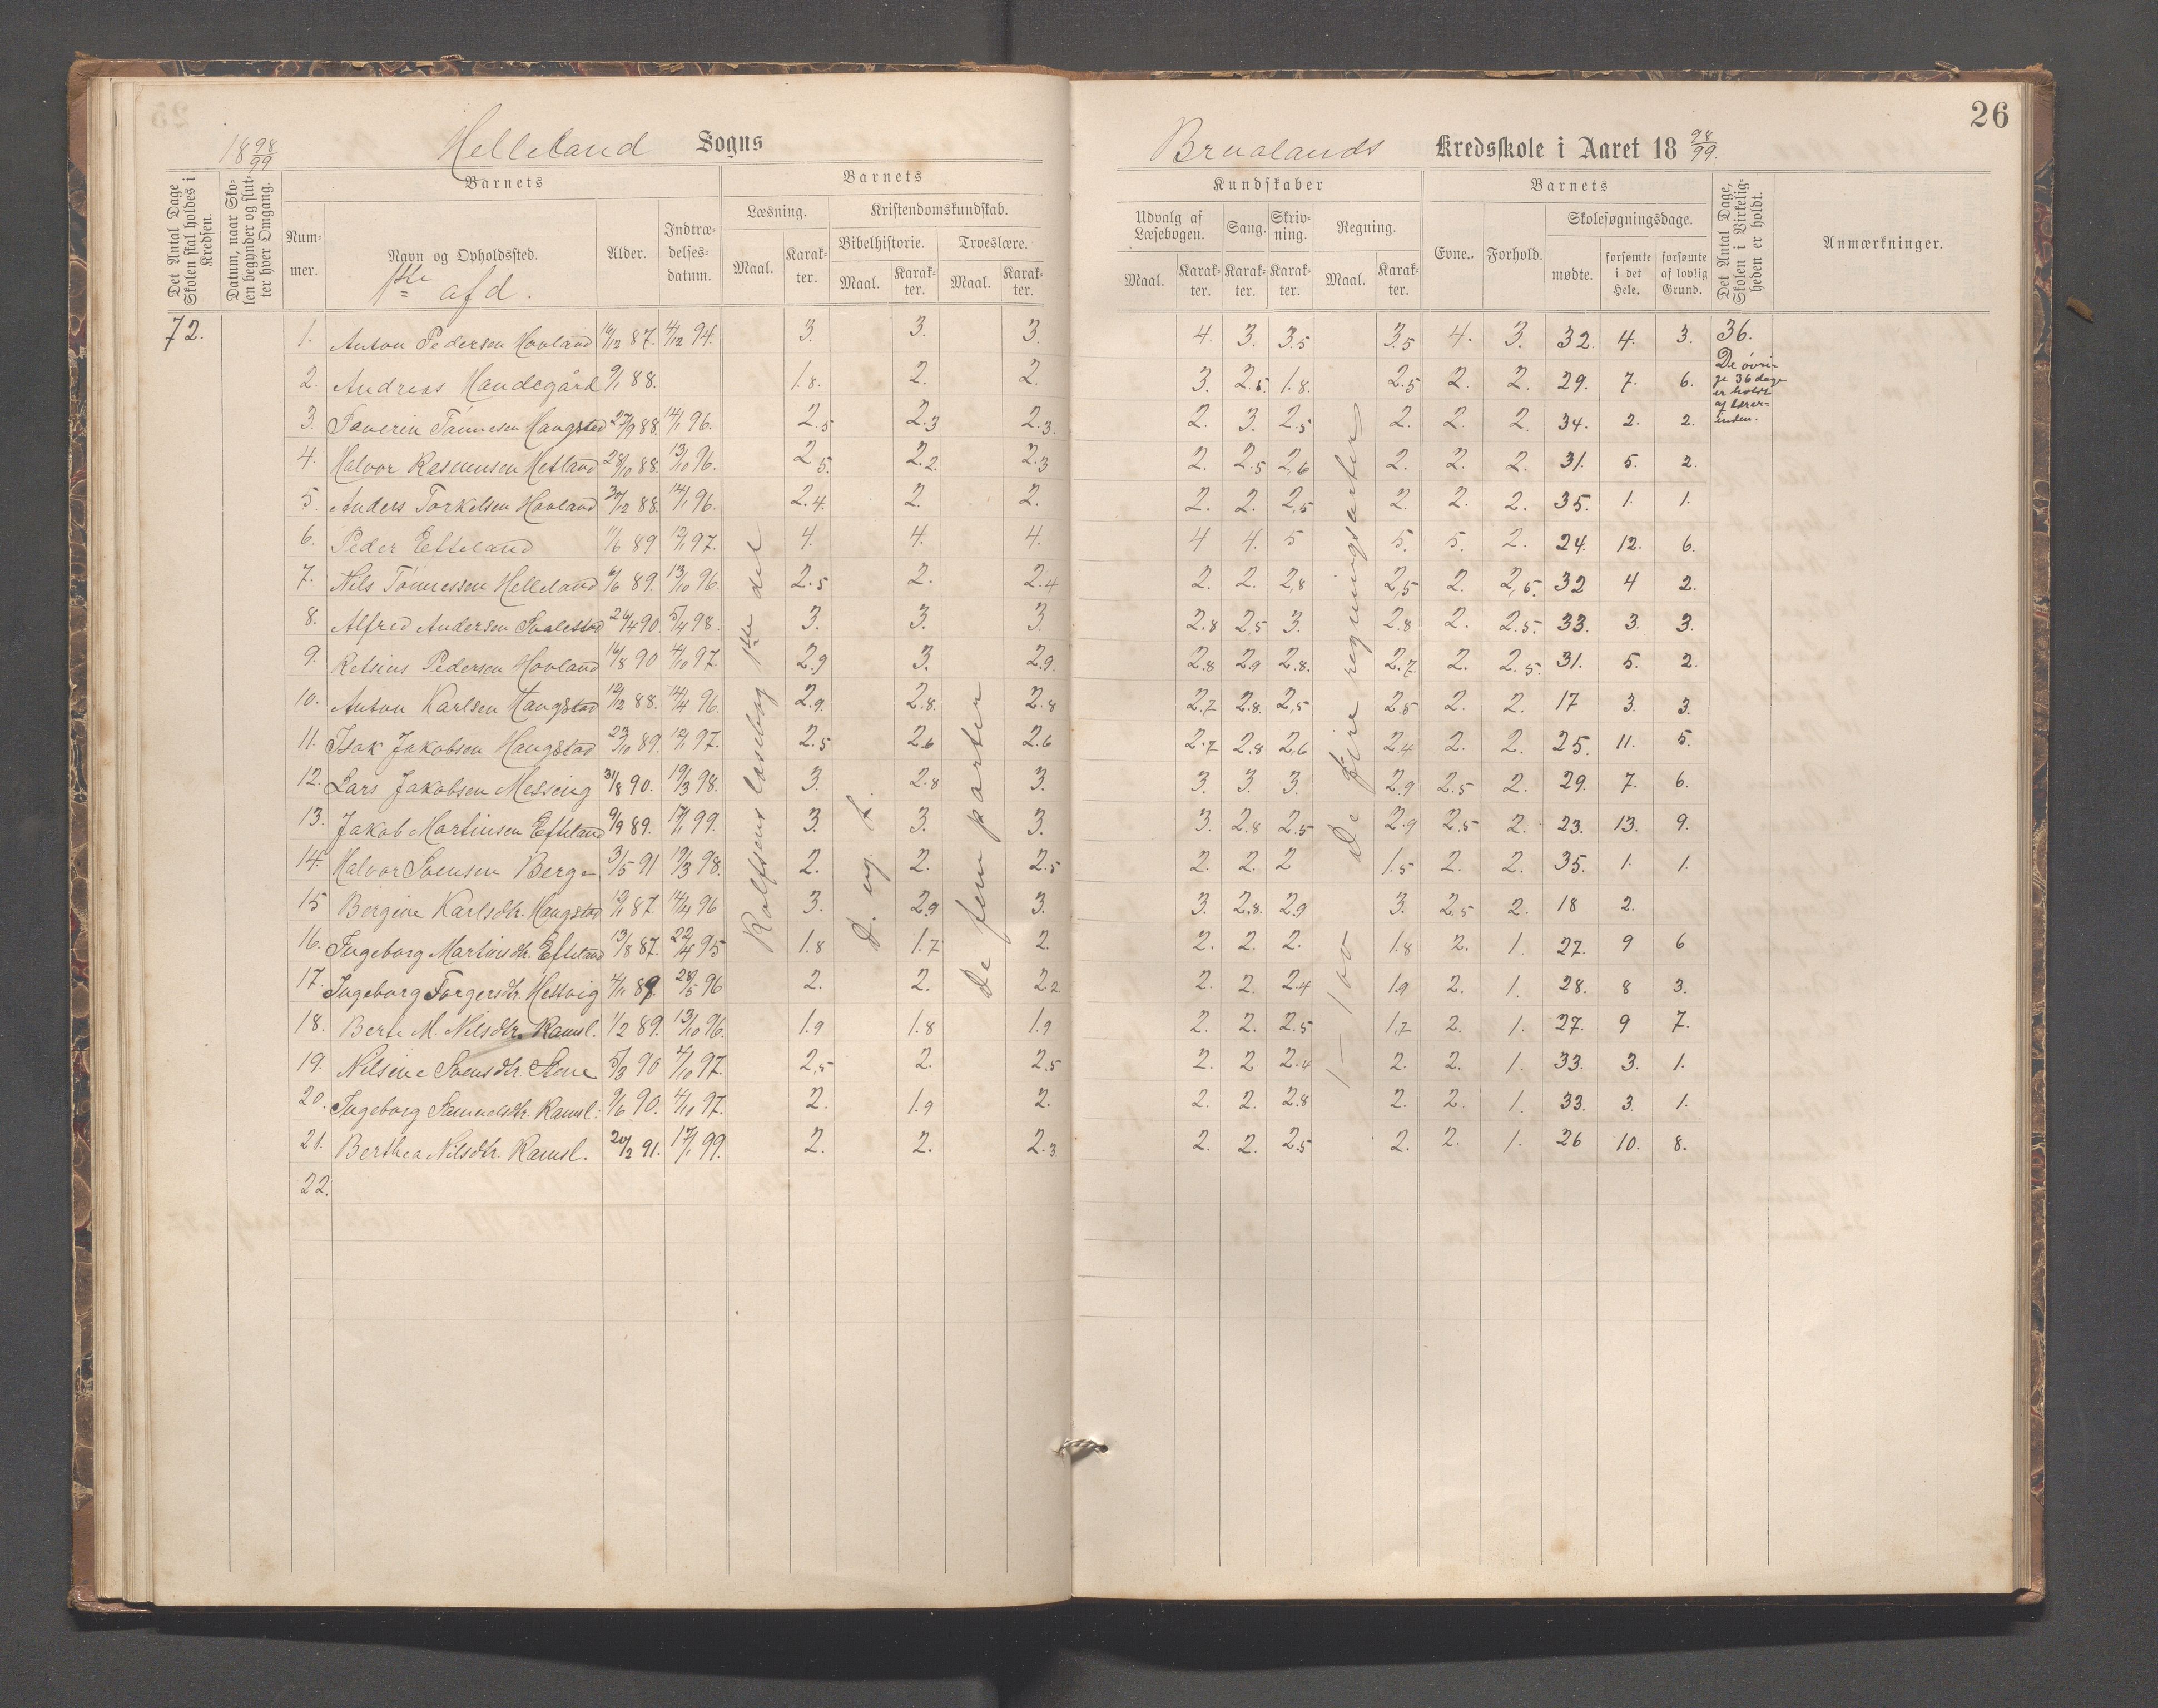 26
18 98/99 Helleland Sogns
Brualands Kredsskole i Aaret 18 98/99.
Det Antal Dage Skolen skal holdes i Kredsen.
Datum, naar Skolen begynder og slutter hver Omgang.
Barnets
Nummer.
Navn og Opholdssted.
1ste afd.
Alder.
Indtrædelsesdatum.
Barnets
Læsning.
Maal.
Karakter.
Kristendomskundskab.
Bibelhistorie.
Maal.
Karakter.
Troeslære.
Maal.
Karakter.
Kundskaber
Udvalg af Læsebogen.
Maal.
Karakter.
Sang.
Karakter.
Skrivning.
Karakter.
Regning.
Maal.
Karakter.
Barnets
Evne.
Forhold.
Skolesøgningsdage.
mødte.
forsømte i det Hele.
forsømte af lovlig Grund.
Det Antal Dage, Skolen i Virkeligheden er holdt.
Anmærkninger.
72.
1. Anton Pedersen Hovland 16/12 87. 4/12 94. 3. 3. 3. 4. 3. 3.5 3.5 4. 3. 32. 4. 3. 36.
De øvrige 36 dage er holdt af lærerinden.
2. Andreas Handegård 9/1 88. 1.8. 2. 2. 3. 2.5 1.8. 2.5 2. 2. 29. 7. 6.
3. Severin Tönnesen Haugstad 27/9 88. 14/1 96. 2.5 2.3 2.3. 2. 3. 2.5 2. 2. 2. 34. 2. 2.
4. Halvor Rasmusen Hetland 28/10 88. 13/10 96. 2.5. 2.2. 2.3 2. 2.5 2,6 2. 2. 2. 31. 5. 2.
5. Anders Torkelsen Hovland 30/12 88. 14/1 96. 2.4. 2. 2. 2. 2. 2,5 2. 2. 2. 35. 1. 1.
6. Peder Efteland 11/6 89 12/1 97. 4. 4. 4. 4 4. 5 5. 5. 2. 24. 12. 6.
7. Nils Tönnessen Helleland 6/6 89. 13/10 96. 2.5 2. 2.4 2. 2. 2,8 2,5 2. 2,5. 32 4 2.
8. Alfred Andersen Svalestad 26/4 90. 5/4 98. 3. 3. 3. 2.8 2,5 3. 2.8 2. 2.5. 33. 3. 3.
9. Retsius Pedersen Hovland 16/8 90 4/10 97. 2.9 3. 2.9. 2.8 2.9 2.8. 2.7. 2. 2.5 31. 5. 2.
10. Anton Karlsen Haugstad 12/12 88. 14/4 96. 2.9. 2.8. 2.8 2.7 2.8. 2,5 2.5 2. 2. 17 3. 3.
11. Isak Jakobsen Haugstad 23/10 89. 12/1 97. 2.5 2.6 2.6 2.7 2.8 2,6 2.4 2. 2. 25. 11. 5.
12. Lars Jakobsen Messing 31/8 90. 19/3 98. 3. 2.8 3. 3. 3. 3. 2.9 2.5 2. 29. 7. 6.
13. Jakob Martinsen Efteland 9/9 89. 17/1 99. 3. 3. 3. 3. 2.8 2.5 2.9 2,5 2. 23. 13. 9.
14. Halvor Svensen Berge 3/5 91 19/3 98. 2. 2. 2.5 2. 2. 2 1.5 2. 2. 35. 1. 1.
15 Bergine Karlsdtr. Haugstad 12/1 87. 14/4 96 3. 2.9 3. 3. 2.8. 2.9 3. 2,5 2. 18 2.
16. Ingeborg Martinsdtr. Efteland 13/8 87. 22/4 95 1.8 1.7 2. 2. 2. 2. 1.8 2. 1. 27. 9 6
17. Ingeborg Torgersdtr. Hettvig 4/11 89. 28/5 96 2. 2. 2.2 2. 2. 2.4 1.9 2. 1. 28. 8 3.
18. Berte M. Nilsdtr. Ramsl. 1/2 89. 13/10 96. 1.9 1.8 1.9 2. 2. 2.5 1,7 2. 1. 27. 9 7.
19. Nilsine Svensdtr. Stene 5/3 90 4/10 97. 2,5 2. 2.5 2. 2 2.4 2. 2. 1. 33. 3. 1.
20. Ingeborg Samuelsdtr. Ramsl. 9/6 90. 4/10 97. 2. 1.9 2. 2. 2. 2.8 2. 2. 1. 33. 3. 1.
21. Berthea Nilsdtr. Ramsl. 20/2 91. 17/1 99. 2. 2. 2.3 2. 2. 2.5 2. 2. 1. 26 10. 8.
22.
Rolfsens læsebog 1ste del
De fem parter
De fire regningsarter 1 – 100